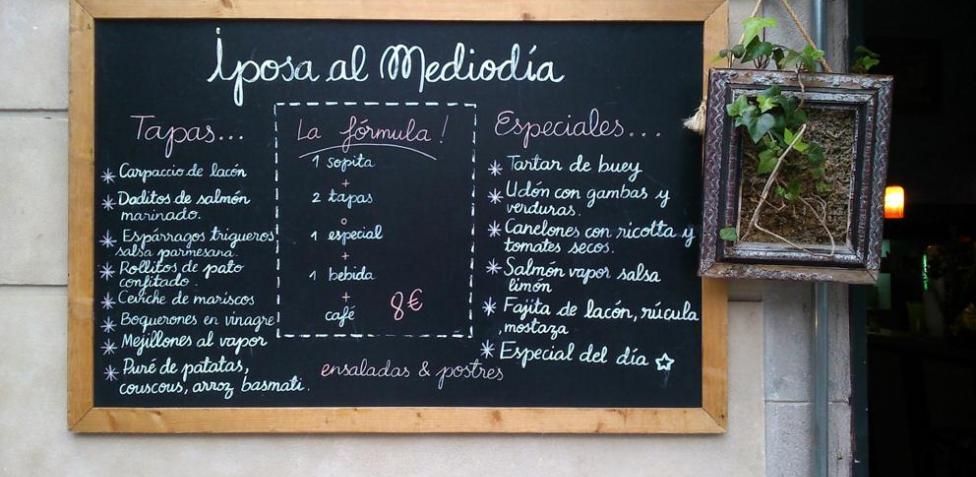 Iposa al Mediodía
Tapas...
* Carpaccio de lacón
* Daditos de salmón
marinado.
* Espárragos trigueros
salsa parmesana.
* Rollitos de pato
confitado.
* Ceviche de mariscos
* Boquerones en vinagre
* Mejillones al vapor
* Puré de patatas,
couscous, arroz basmati.
La fórmula!
1 sopita
+
2 tapas
o
1 especial
+
1 bebida
+
café 8€
ensaladas & postres
Especiales...
* Tartar de buey
* Udón con gambas y
verduras.
* Canelones con ricotta y
tomates secos.
* Salmón vapor salsa
limón
* Fajita de lacón, rúcula
,mostaza
* Especial del día ☆